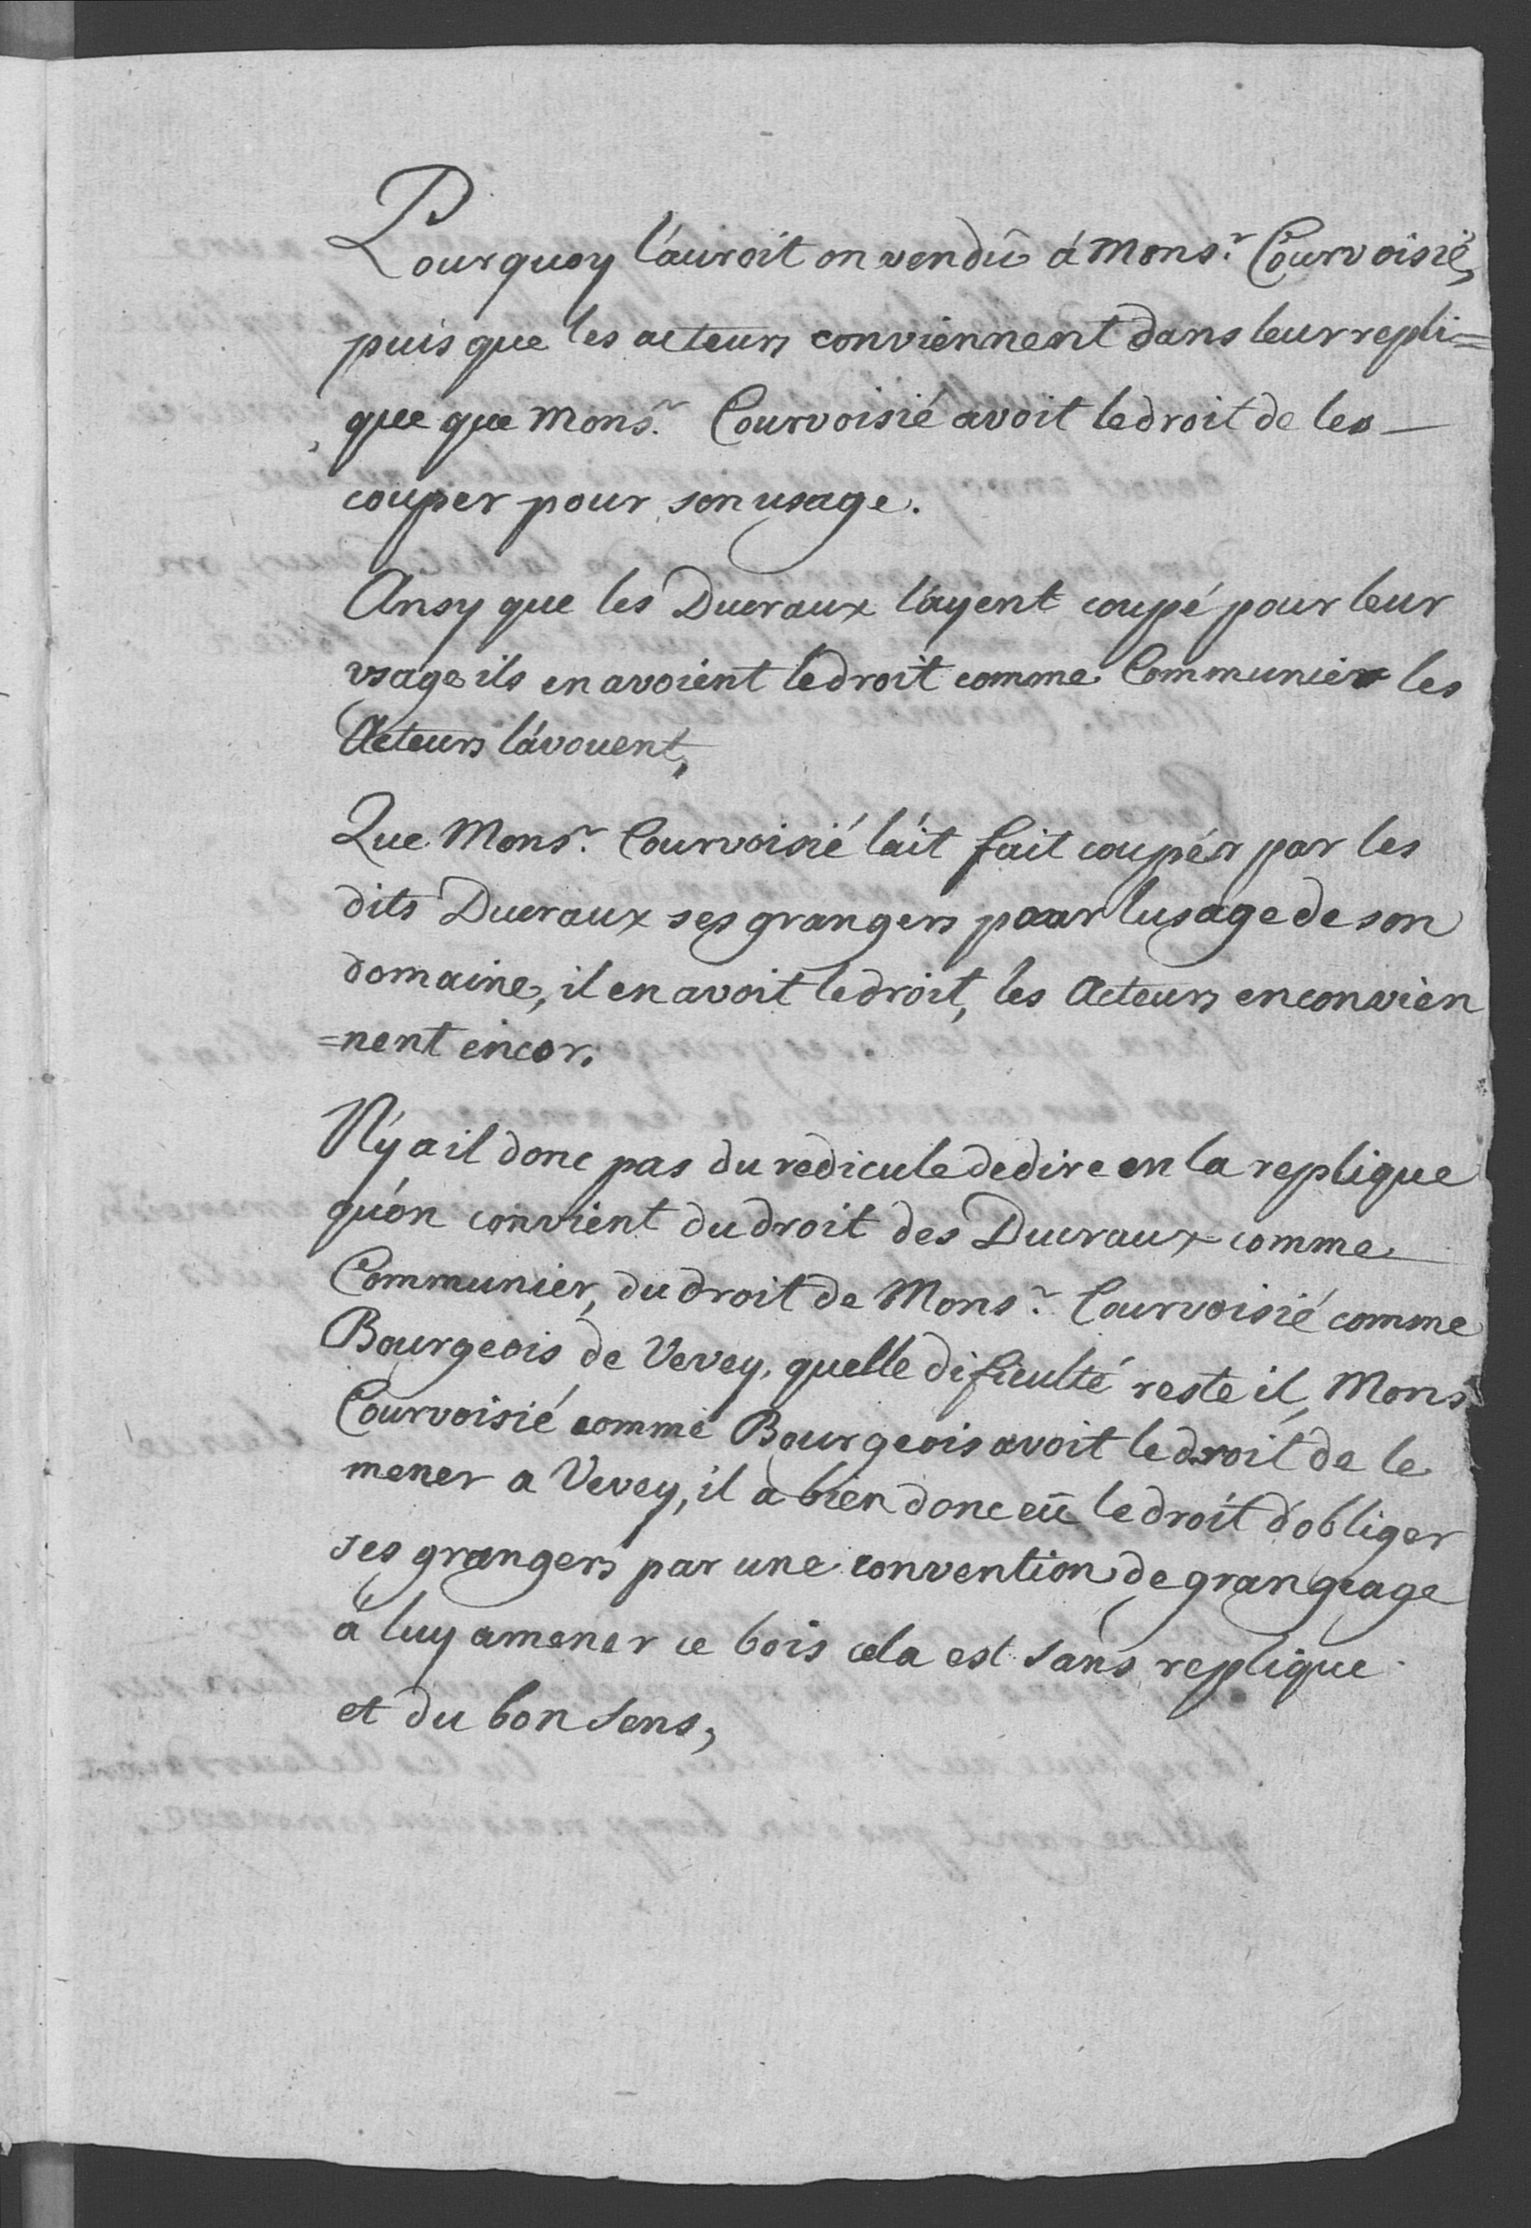 Pourquoy l'auroit on vendû á Mons.r Courvoisié,
puis que les acteurs conviennent dans leur repli=
que que Mons.r Courvoisié avoit le droit de les —
couper pour son usage.
Ansy que les Ducraux l'ayent coupé pour leur
usage ils en avoient le droit comme Communier les
Acteurs l'avouent,
Que Mons.r Courvoisié l'áit fait coupér par les
dits Ducraux ses grangers pour lusage de son
domaine, il en avoit le droit, les Acteurs en convien
=nent encor.
N'y a il donc pas du redicule de dire en la replique
qu'on convient du droit des Ducraux comme
Communier, du droit de Mons.r Courvoisié comme
Bourgeois de Vevey, quelle dificulté reste il, Mons.r
Courvoisié comme Bourgeois avoit le droit de le
mener a Vevey, il a bien donc eû le droit d'obliger
ses grangers par une convention de grangeage
á luy amener ce bois cela est sans replique
et du bon sens,